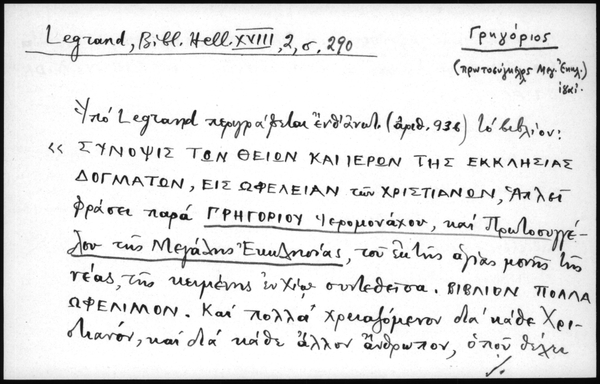 Legrand, Bibl. Hell. XVIII, 2, σ. 290
Γρηγόριος
(πρωτοσύγκελος Μεγ. Ἐκκλ.)
Ὑπό Legrand περιγράφεται ἔνθ' ἀνωτ. (ἀριθ. 936) τό βιβλίον:
« ΣΥΝΟΨΙΣ ΤΩΝ ΘΕΙΩΝ ΚΑΙ ΙΕΡΩΝ ΤΗΣ ΕΚΚΛΗΣΙΑΣ
ΔΟΓΜΑΤΩΝ, ΕΙΣ ΩΦΕΛΕΙΑΝ τῶν ΧΡΙΣΤΙΑΝΩΝ, Ἁπλεῖ
φράσει παρά ΓΡΗΓΟΡΙΟΥ Ἱερομονάχου, καί Πρωτοσυγγέ-
λου τῆς Μεγάλης Ἐκκλησίας, τοῦ ἐκ τῆς ἁγίας μονῆς τῆς
νέας, τῆς κειμένης ἐν Χίῳ συντεθεῖσα. ΒΙΒΛΙΟΝ ΠΟΛΛΑ
ΩΦΕΛΙΜΟΝ. Καί πολλά χρειαζόμενον διά κάθε Χρι-
στιανόν, καί διά κάθε ἄλλον ἄνθρωπον, ὁποῦ θέλει